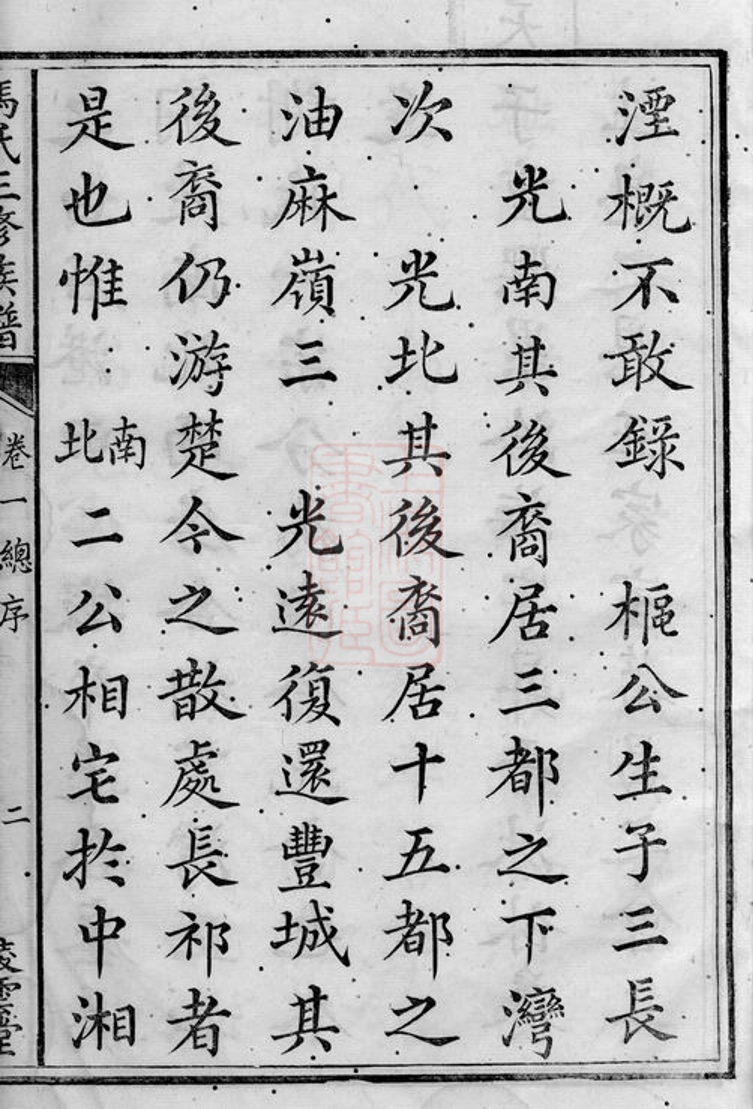 湮概不敢錄　樞公生子三長
光南其後裔居三都之下灣
次　光北其後裔居十五都之
油麻嶺三　光遠復還豐城其
後裔仍游楚今之散處長祁者
是也惟南北二公相宅於中湘
馮氏三修族譜　卷一總序　二